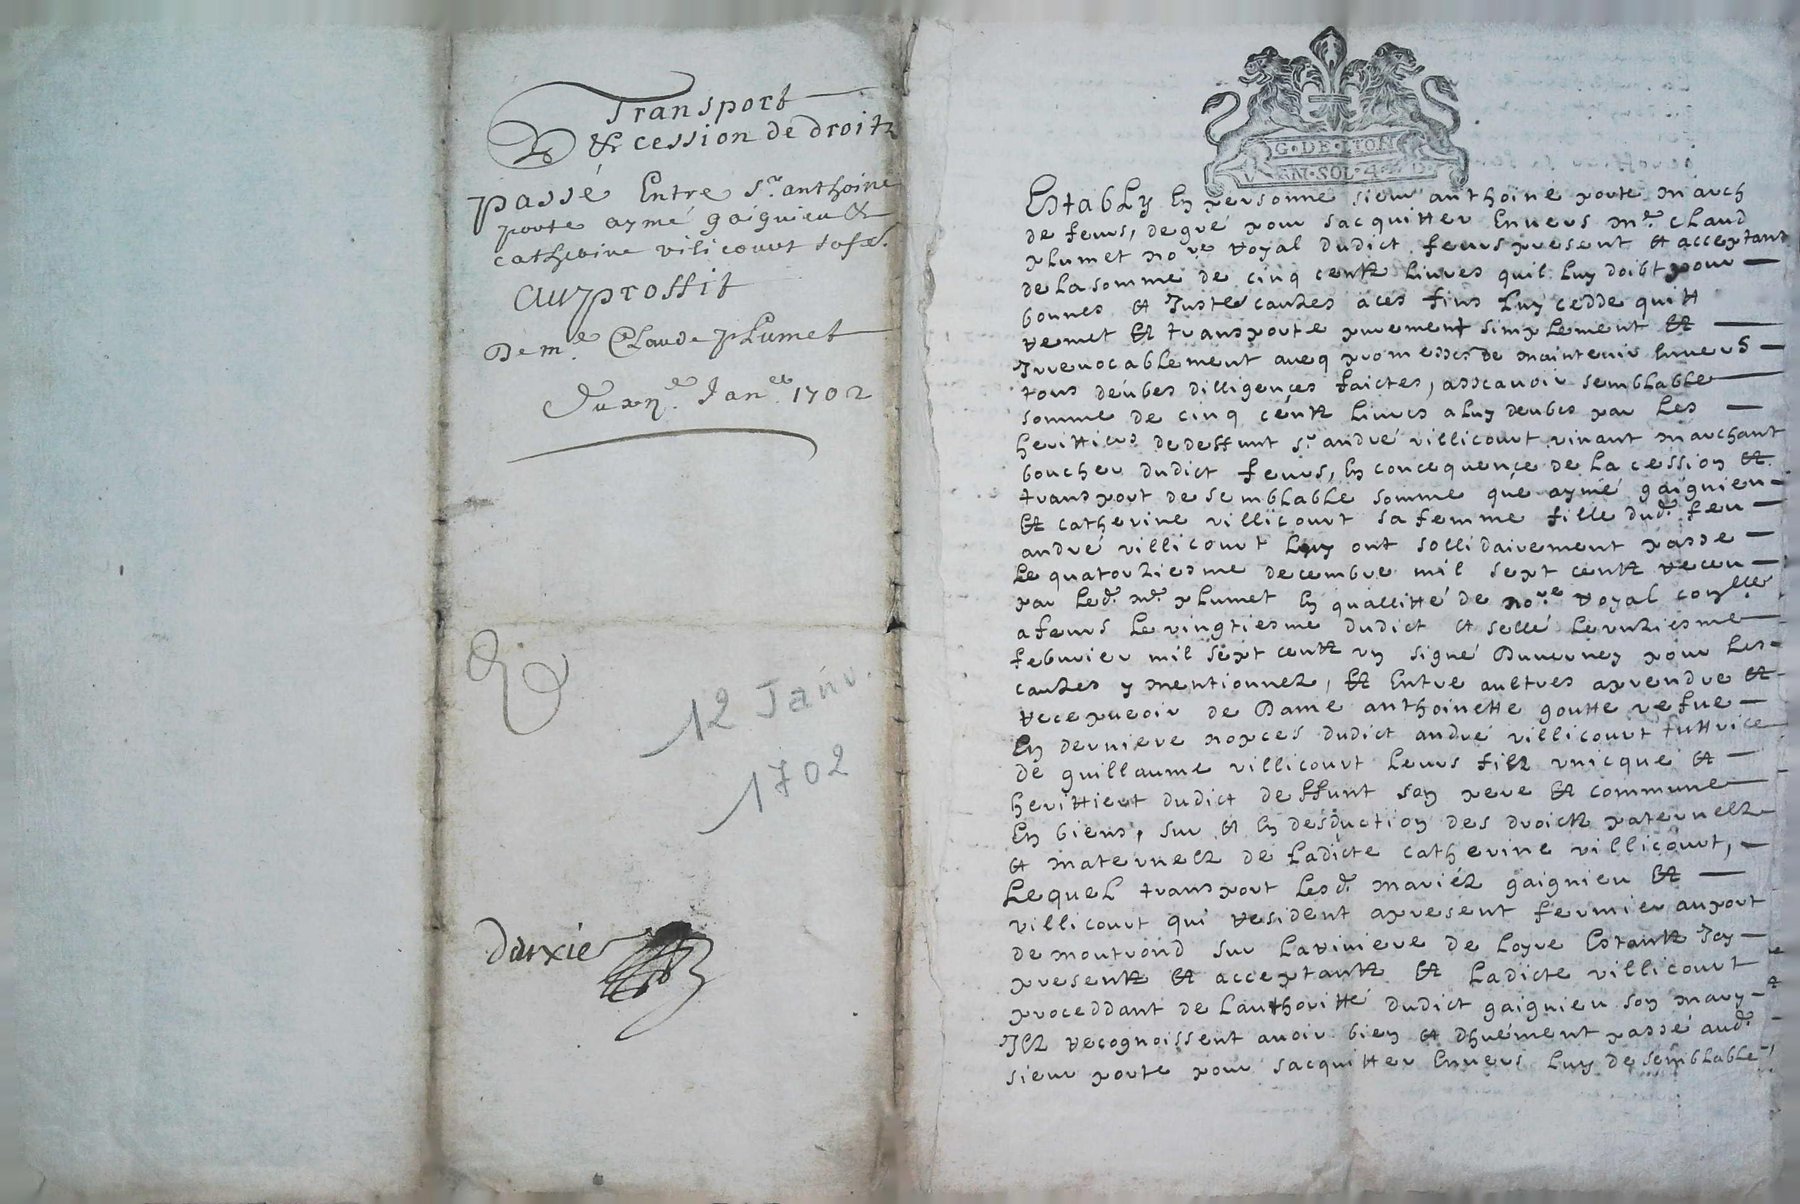 Transport
& cession de droitz
passé Entre Sr. anthoine
porte aymé gaignieu &
catherine vilicourt sa fe.
Au proffit
De me. Claude plumet
Du xije. Janer. 1702
12 Janv.
1702
Darxie
G·DE·LYON
EN·SOL·4·
Establÿ En personne sieur anthoine porte march
de feurs, de gré pour sacquitter Envers me. claud
plumet nore royal dudict feurs present et acceptant
de La somme de cinq centz Livres quil Luy doibt pour
bonnes et Justes causes a ces fins Luy cedde quitte
remet et transporte purement simplement et
Irrevocablement aveq promesses de maintenir Envers
tous deubes dilligences faictes, asscavoir semblable
somme de cinq centz Livres a Luy deubes par Les
herittiers de deffunt sr andré villicourt vivant marchant
boucher dudict feurs, En concequence de La cession et
transport de semblable somme que aymé gaignieu
et catherine villicourt sa femme fille dud. feu
andré villicourt Luy ont sollidairement passe
Le quatorziesme decembre mil sept centz receu
par Led. me. plumet En quallitté de nore royal
a feurs Le vingtiesme dudict et sellé Le unziesme
febvrier mil sept centz un signé Duverney pour Les
causes y mentionnez, et Entre aultres a prendre et
recepvoir de Dame anthoinette goutte vefue
En derniere nopces dudict andré villicourt tuttrice
de guillaume villicourt Leurs filz unicque et
herittier dudict deffunt son pere et commune
En biens, sur et En desduction des droictz paternelz
et maternelz de Ladicte catherine villicourt,
Lequel transport Lesd. mariéz gaignieu et
villicourt qui resident a present fermier au port
de montrond sur La riviere de Loyre Estantz Icy
presentz et acceptantz et Ladicte villicourt
proceddant de Lauthoritté dudict gaignieu son mary
Ilz recognoissent avoir bien et dhuement passé aud.
sieur porte pour sacquitter Envers Luy de semblable